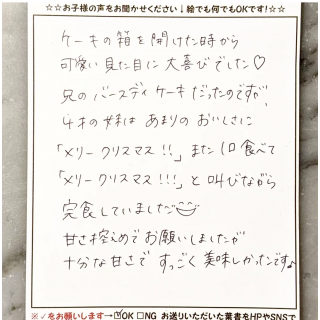 ☆☆お子様の声をお聞かせください↓絵でも何でもOKです!☆☆
ケーキの箱を開けた時から
可愛い見た目に大喜びでした♡
兄のバースディケーキだったのですが、
4才の妹はあまりのおいしさに
「メリークリスマス!!」また1口食べて
「メリークリスマス!!!」と叫びながら
完食していました
甘さ控えめでお願いしましたが
十分な甘さですっごく美味しかったです♪
※✓をお願いします→☑OK □NG お送りいただいた葉書をHPやSNSで